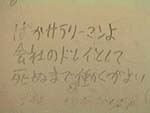 ばかサラリーマンよ
会社のドレイとして
死ぬまで働くがよい